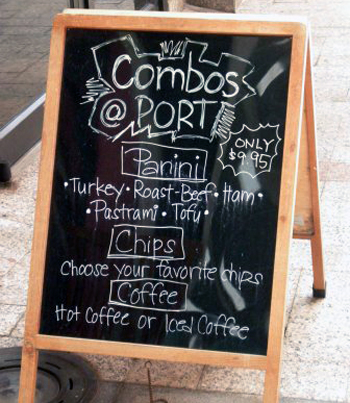 Combos
@ PORT
ONLY
$9.95
Panini
·Turkey·Roast-Beef·Ham·
·Pastrami·Tofu·
Chips
Choose your favorite chips
Coffee
Hot Coffee or Iced Coffee